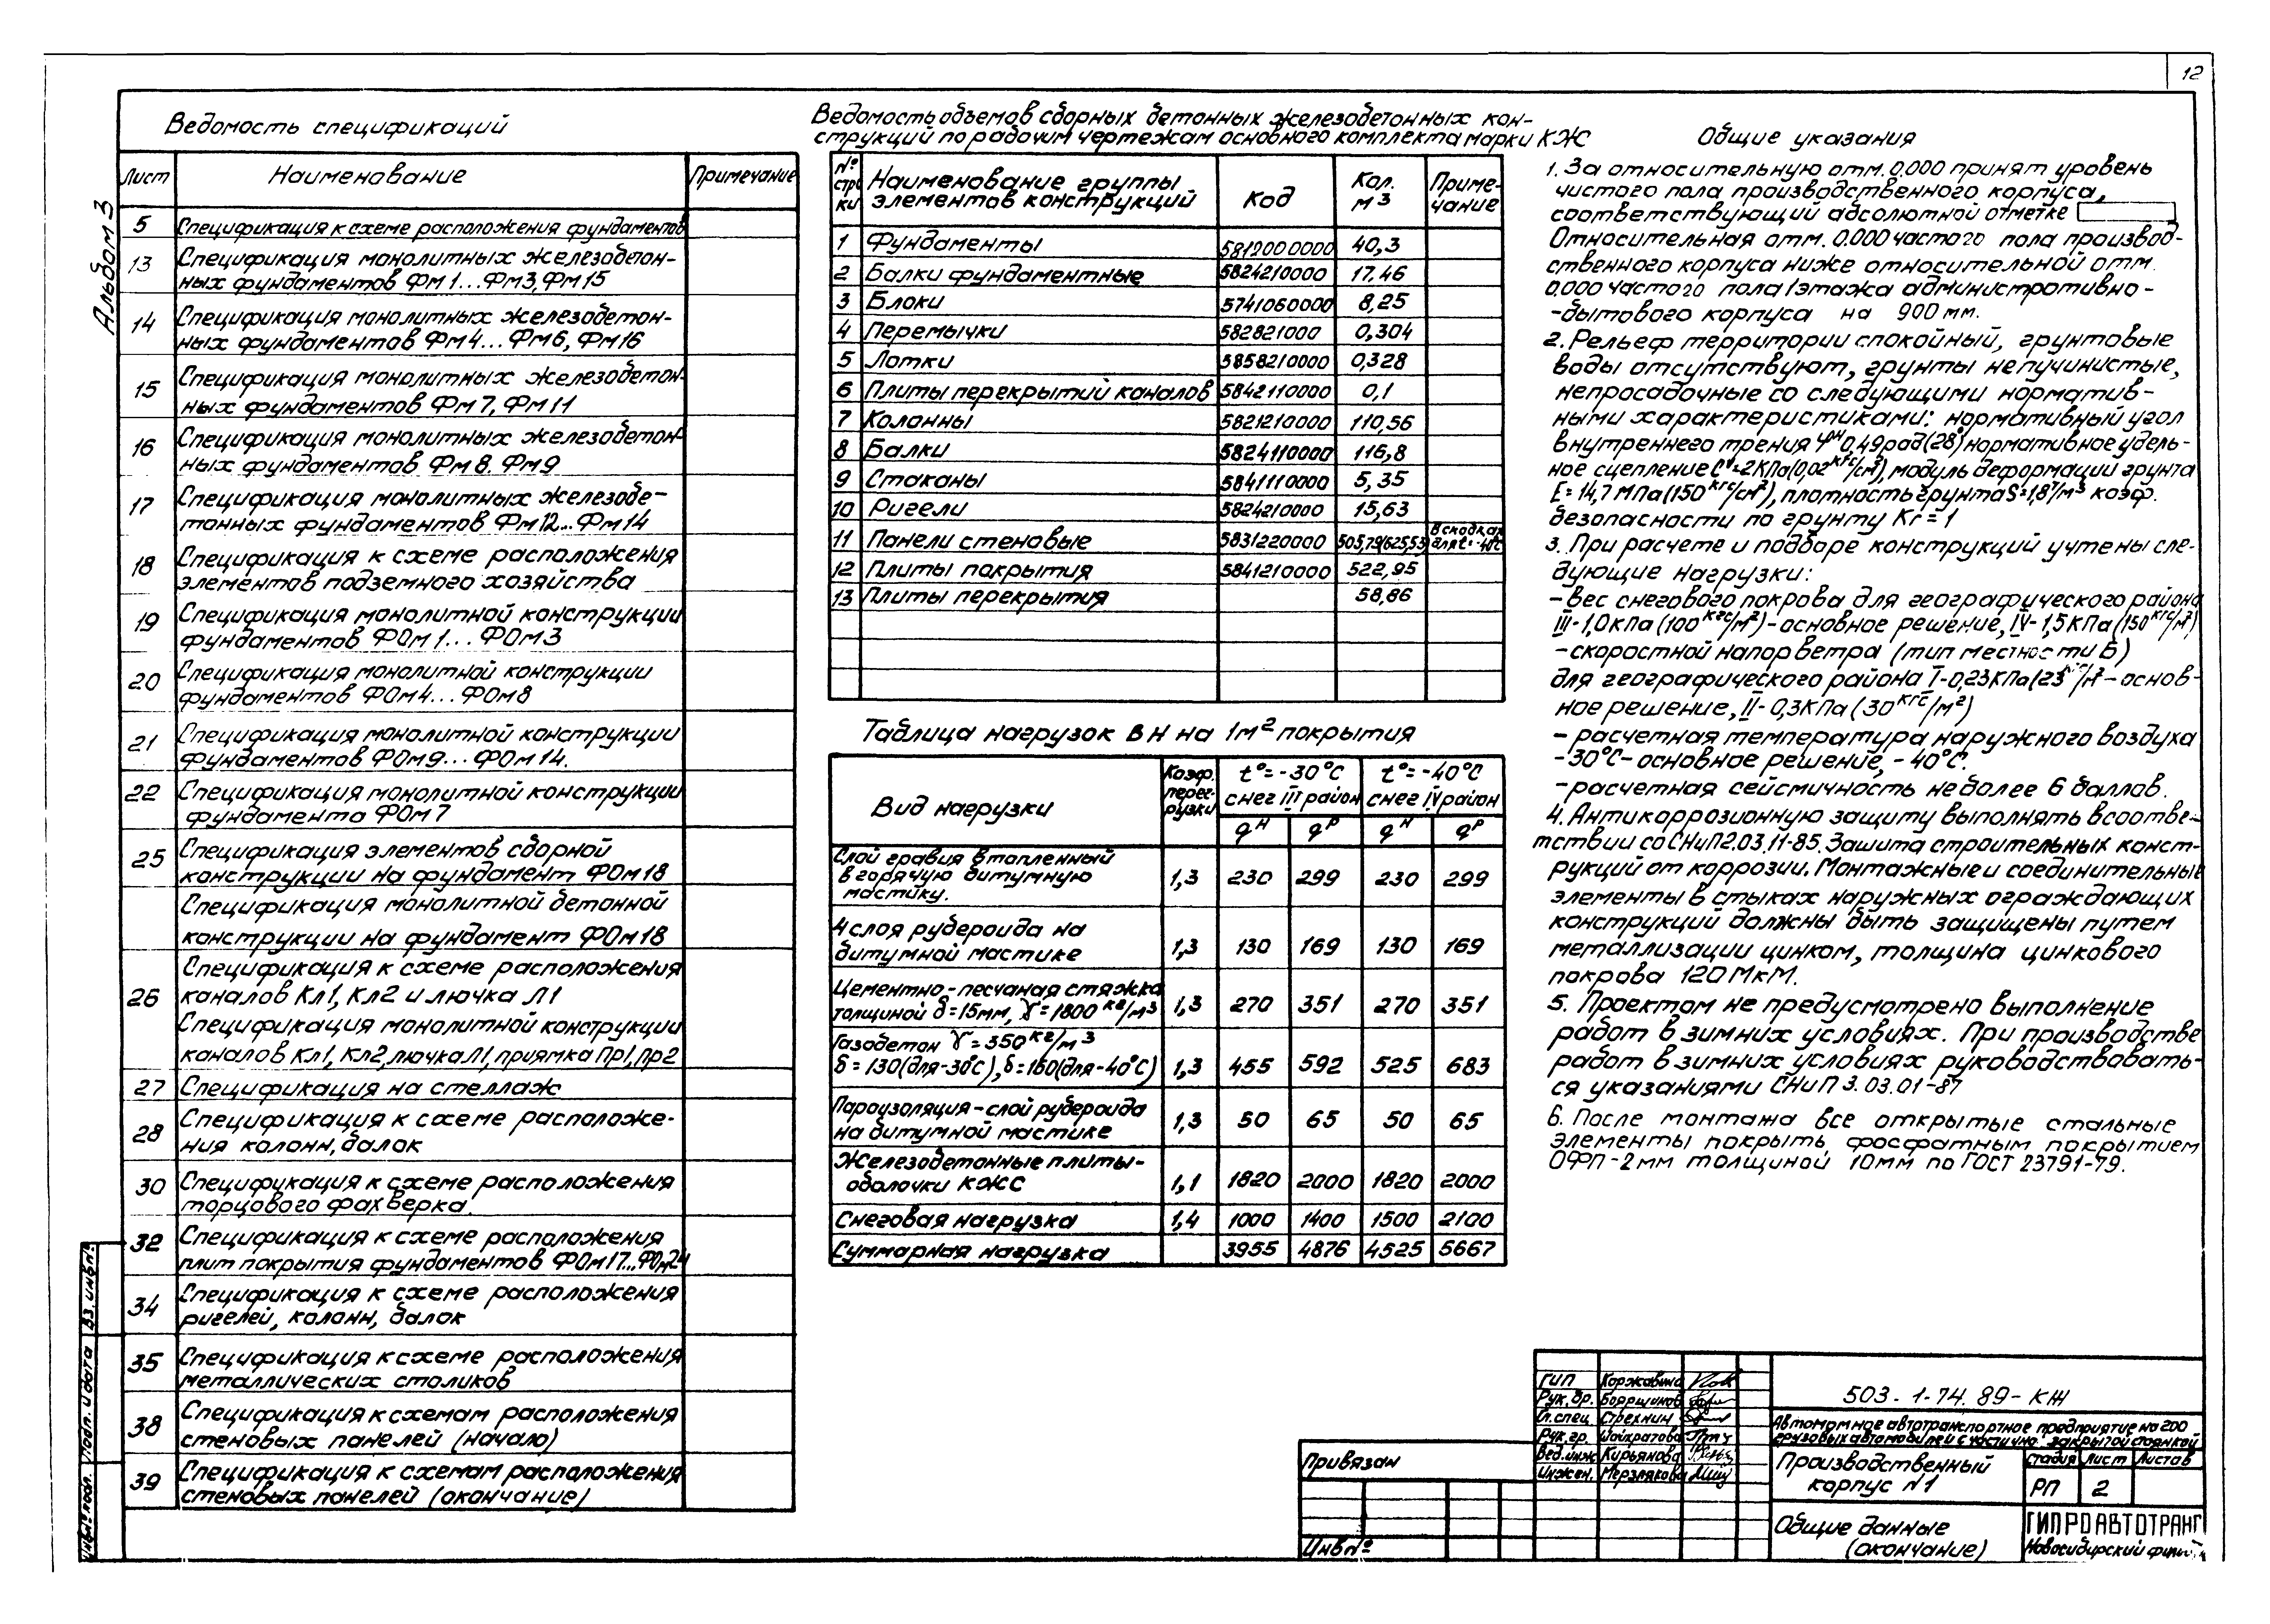 12
Альбом 3
Ведомость спецификаций
Лист Наименование Примечание
5 Спецификация к схеме расположения фундаментов
13 Спецификация монолитных железобетон-
ных фундаментов Фм1...Фм3, Фм15
14 Спецификация монолитных железобетон-
ных фундаментов Фм4...Фм6, Фм16
15 Спецификация монолитных железобетон-
ных фундаментов Фм7, Фм11
16 Спецификация монолитных железобетон-
ных фундаментов Фм8. Фм9
17 Спецификация монолитных железобе-
тонных фундаментов Фм12...Фм14
18 Спецификация к схеме расположения
элементов подземного хозяйства
19 Спецификация монолитной конструкции
фундаментов ФОм1...ФОм3
20 Спецификация монолитной конструкции
фундаментов ФОм4...ФОм8
21 Спецификация монолитной конструкции
фундаментов ФОм9...ФОм14.
22 Спецификация монолитной конструкции
фундамента ФОм7
25 Спецификация элементов сборной
конструкции на фундамент ФОм18
Спецификация монолитной бетонной
конструкции на фундамент ФОм18
26 Спецификация к схеме расположения
каналов Кл1, Кл2 и лючка Л1
Спецификация монолитной конструкции
каналов Кл1, Кл2, лючка Л1, приямка Пр1, Пр2
27 Спецификация на стеллаж
28 Спецификация к схеме расположе-
ния колонн, балок
30 Спецификация к схеме расположения
торцового фахверка.
32 Спецификация к схеме расположения
плит покрытия фундаментов ФОм17...ФОм24
34 Спецификация к схеме расположения
ригелей, колонн, балок
35 Спецификация к схеме расположения
металлических столиков
38 Спецификация к схемам расположения
стеновых панелей (начало)
39 Спецификация к схемам расположения
стеновых панелей (окончание)
Ведомость объемов сборных бетонных железобетонных кон-
струкций по рабочим чертежам основного комплекта марки КЖ
№ стро ки Наименование группы элементов конструкций Код Кол. м³ Приме-чание
1 Фундаменты 5812000000 40,3
2 Балки фундаментные 5824210000 17.46
3 Блоки 5741060000 8,25
4 Перемычки 582821000 0,304
5 Лотки 5858210000 0,328
6 Плиты перекрытий каналов 5842110000 0,1
7 Колонны 5821210000 110,56
8 Балки 5824110000 116,8
9 Стаканы 5841110000 5,35
10 Ригели 5824210000 15,63
11 Панели стеновые 5831220000 505,79(625,53) В скобках для t=-40°C
12 Плиты покрытия 5841210000 522,95
13 Плиты перекрытия 58,86
Таблица нагрузок в Н на 1м² покрытия
Вид нагрузки Коэф. перег-рузки t°=-30°C снег III район t°=-40°C снег IV район
qᴴ qᴾ qᴴ qᴾ
Слой гравия втопленный
в горячую битумную
мастику. 1,3 230 299 230 299
4 слоя рубероида на
битумной мастике 1,3 130 169 130 169
Цементно-песчаная стяжка
толщиной δ=15мм, γ=1800 кг/м³ 1,3 270 351 270 351
Газобетон γ=350 кг/м³
δ=130(для-30°C), δ=160(для-40°C) 1,3 455 592 525 683
Пароизоляция-слой рубероида
на битумной мастике 1,3 50 65 50 65
Железобетонные плиты-
оболочки КЖС 1,1 1820 2000 1820 2000
Снеговая нагрузка 1,4 1000 1400 1500 2100
Суммарная нагрузка 3955 4876 4525 5667
Общие указания
1. За относительную отм. 0.000 принят уровень
чистого пола производственного корпуса,
соответствующий абсолютной отметке
Относительная отм. 0.000 частого пола производ-
ственного корпуса ниже относительной отм.
0,000 частого пола 1 этажа административно-
-бытового корпуса на 900 мм.
2. Рельеф территории спокойный, грунтовые
воды отсутствуют, грунты непучинистые,
непросадочные со следующими норматив-
ными характеристиками: нормативный угол
внутреннего трения φᴴ 0,49 рад (28°) нормативное удель-
ное сцепление Cᴴ=2КПа (0,02 кгс/см²), модуль деформации грунта
E=14,7 МПа (150 кгс/см²), плотность грунта S=1,8 т/м³ коэф.
безопасности по грунту Kг=1
3. При расчете и подборе конструкций учтены сле-
дующие нагрузки:
-вес снегового покрова для географического района
III-1,0 кПа (100 кгс/м²)-основное решение, IV-1,5 КПа (150 кгс/м²)
-скоростной напор ветра (тип местности Б)
для географического района I-0,23 КПа (23 кгс/м²-основ-
ное решение, II-0,3 КПа (30 кгс/м²)
-расчетная температура наружного воздуха
-30°C-основное решение, -40°C.
-расчетная сейсмичность не более 6 баллов.
4. Антикоррозионную защиту выполнять в соотве-
тствии со СНиП 2.03.11-85. Защита строительных конст-
рукций от коррозии. Монтажные и соединительные
элементы в стыках наружных ограждающих
конструкций должны быть защищены путем
металлизации цинком, толщина цинкового
покрова 120 МкМ.
5. Проектом не предусмотрено выполнение
работ в зимних условиях. При производстве
работ в зимних условиях руководствовать-
ся указаниями СНиП 3.03.01-87
6. После монтажа все открытые стальные
элементы покрыть фосфатным покрытием
ОФП-2мм толщиной 10мм по ГОСТ 23791-79.
Инв№ подл. Подп. и дата Вз. инв№
Привязан
Инв№
ГИП Коржавина
Рук. бр. Бояршинов
Гл. спец. Стрехнин
Рук. гр. Шайхратова
Вед. инж. Кирьянова
Инжен. Мерзлякова
503-1-74.89-КЖ
Автономное автотранспортное предприятие на 200
грузовых автомобилей с частично закрытой стоянкой
Производственный
корпус №1
Стадия Лист Листов
РП 2
Общие данные
(окончание)
ГИПРОАВТОТРАНС
Новосибирский филиал